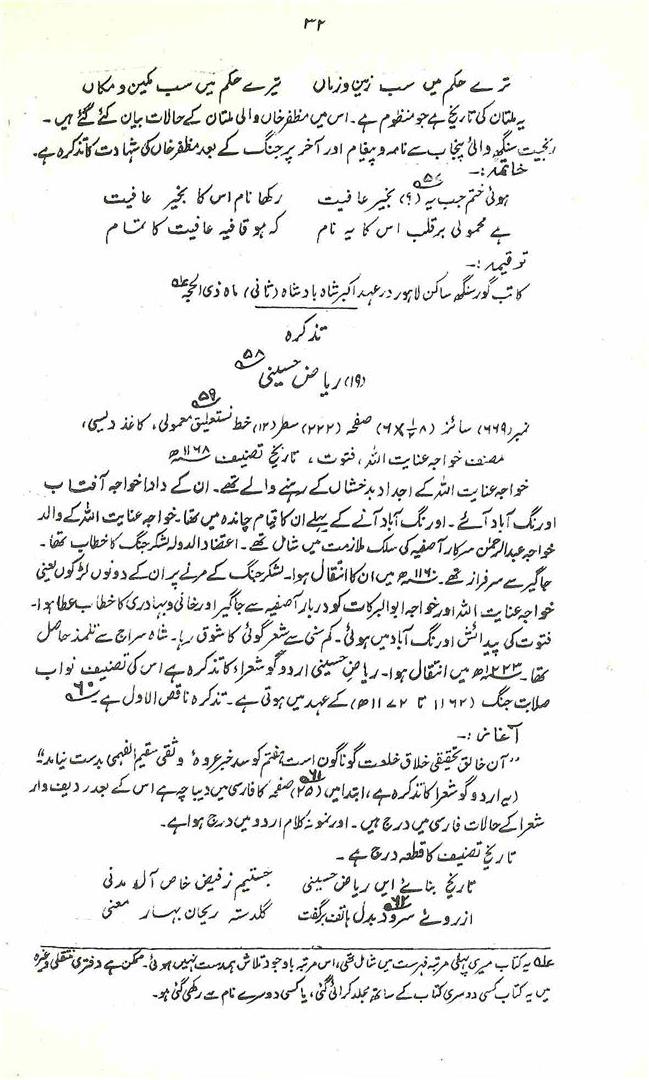 ۳۲
ترے حکم میں سب زمین و زماں تیرے حکم میں سب مکین و مکاں
یہ ملتان کی تاریخ ہے جو منظوم ہے۔ اس میں مظفر خاں والی ملتان کے حالات بیان کئے گئے ہیں۔
رنجیت سنگھ والئ پنجاب سے نامہ و پیغام اور آخر پر جنگ کے بعد مظفر خاں کی شہادت کا تذکرہ ہے۔
خاتمہ :۔
ہوئی ختم جب یہ (؟) بخیر عافیت رکھا نام اس کا بخیر عافیت
ہے محمولی بر قلب اس کا یہ نام کہ ہو قافیہ عافیت کا تمام
توقیمہ :۔
کاتب گور سنگھ ساکن لاہور در عہد اکبر شاہ بادشاہ (ثانی) ماہ ذی الحجہ
تذکرہ
(۱۹) ریاض حسینی ۵۸
نمبر (۶۶۹) سائز (۸ ½ × ۶) صفحہ (۲۲۲) سطر (۱۲) خط نستعلیق معمولی، کاغذ دیسی، ۵۹
مصنف خواجہ عنایت اللہ، فتوت، تاریخ تصنیف ۱۱۶۸ھ
خواجہ عنایت اللہ کے اجداد بدخشاں کے رہنے والے تھے۔ ان کے دادا خواجہ آفتاب
اورنگ آباد آئے۔ اورنگ آباد آنے کے پہلے ان کا قیام چاندہ میں تھا۔ خواجہ عنایت اللہ کے والد
خواجہ عبدالرحمٰن سرکار آصفیہ کی سلک ملازمت میں شامل تھے۔ اعتضاد الدولہ لشکر جنگ کا خطاب تھا۔
جاگیر سے سرفراز تھے۔ ۱۱۶۰ھ میں ان کا انتقال ہوا۔ لشکر جنگ کے مرنے پر ان کے دونوں لڑکوں یعنی
خواجہ عنایت اللہ اور خواجہ ابوالبرکات کو دربار آصفیہ سے جاگیر اور خانی و بہادری کا خطاب عطا ہوا۔
فتوت کی پیدائش اورنگ آباد میں ہوئی۔ کم سنی سے شعر گوئی کا شوق رہا۔ شاہ سراج سے تلمذ حاصل
تھا۔ ۱۲۲۳ھ میں انتقال ہوا۔ ریاض حسینی اردو گو شعراء کا تذکرہ ہے اس کی تصنیف نواب
صلابت جنگ (۱۱۶۲ تا ۱۱۷۲ھ) کے عہد میں ہوتی ہے۔ تذکرہ ناقص الاول ہے ۶۰
آغاز :۔
"آن خالق تحقیقی خلاق خلوت گوناگون است ہفتم کو سد خیر عروہ وثقی مقیم الفہمی بدست نیامد"
(یہ اردو گو شعرا کا تذکرہ ہے، ابتدا میں (۲۵) صفحہ کا فارسی میں دیباچہ ہے اس کے بعد ردیف وار ۶۱
شعرا کے حالات فارسی میں درج ہیں۔ اور نمونہ کلام اردو میں درج ہوا ہے۔
تاریخ تصنیف کا قطعہ درج ہے۔
تاریخ بنائے ایں ریاض حسینی جستیم ز فیض خاص آلہ مدنی
از روئے سرود بدل ہاتف برگفت گلدستہ ریحان بہار معنی ۶۲
عہ یہ کتاب میری پہلی مرتبہ فہرست میں شامل تھی، اس مرتبہ باوجود تلاش ہمدست نہیں ہوئی۔ ممکن ہے دفتری منتقلی وغیرہ
میں یہ کتاب کسی دوسری کتاب کے ساتھ مجلد کرائی گئی، یا کسی دوسرے نام سے رکھی گئی ہو۔